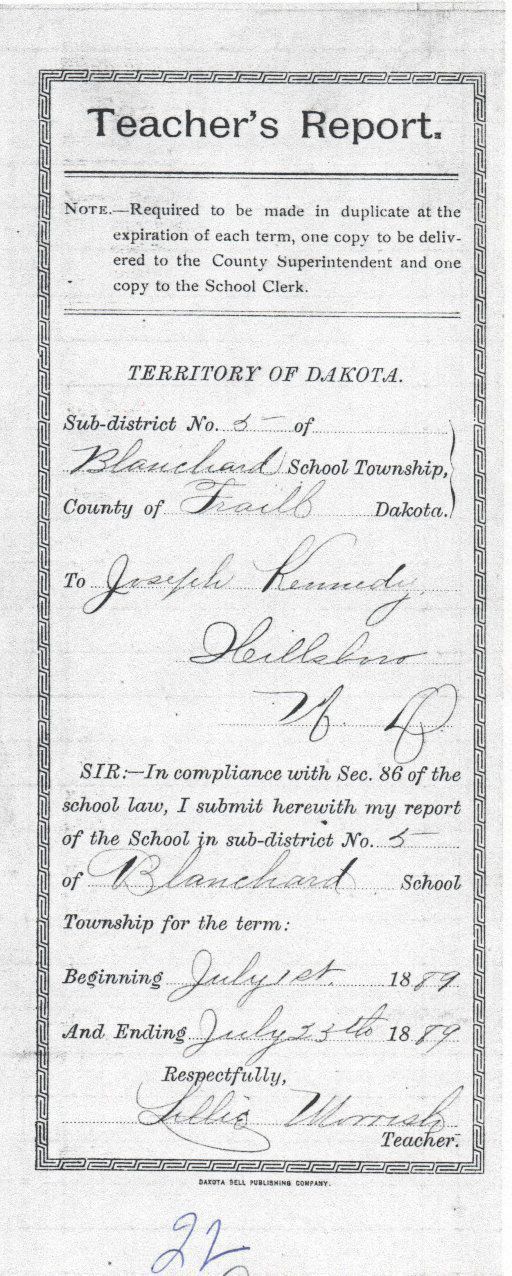 Teacher's Report.
NOTE.—Required to be made in duplicate at the
expiration of each term, one copy to be deliv-
ered to the County Superintendent and one
copy to the School Clerk.
TERRITORY OF DAKOTA.
Sub-district No. 5 of
Blanchard School Township,
County of Traill Dakota.
To Joseph Kennedy,
Hillsboro
N. D
SIR:—In compliance with Sec. 86 of the
school law, I submit herewith my report
of the School in sub-district No. 5
of Blanchard School
Township for the term:
Beginning July 1st. 1889
And Ending July 23th 1889
Respectfully,
Lillie Morrish
Teacher.
DAKOTA BELL PUBLISHING COMPANY.
22